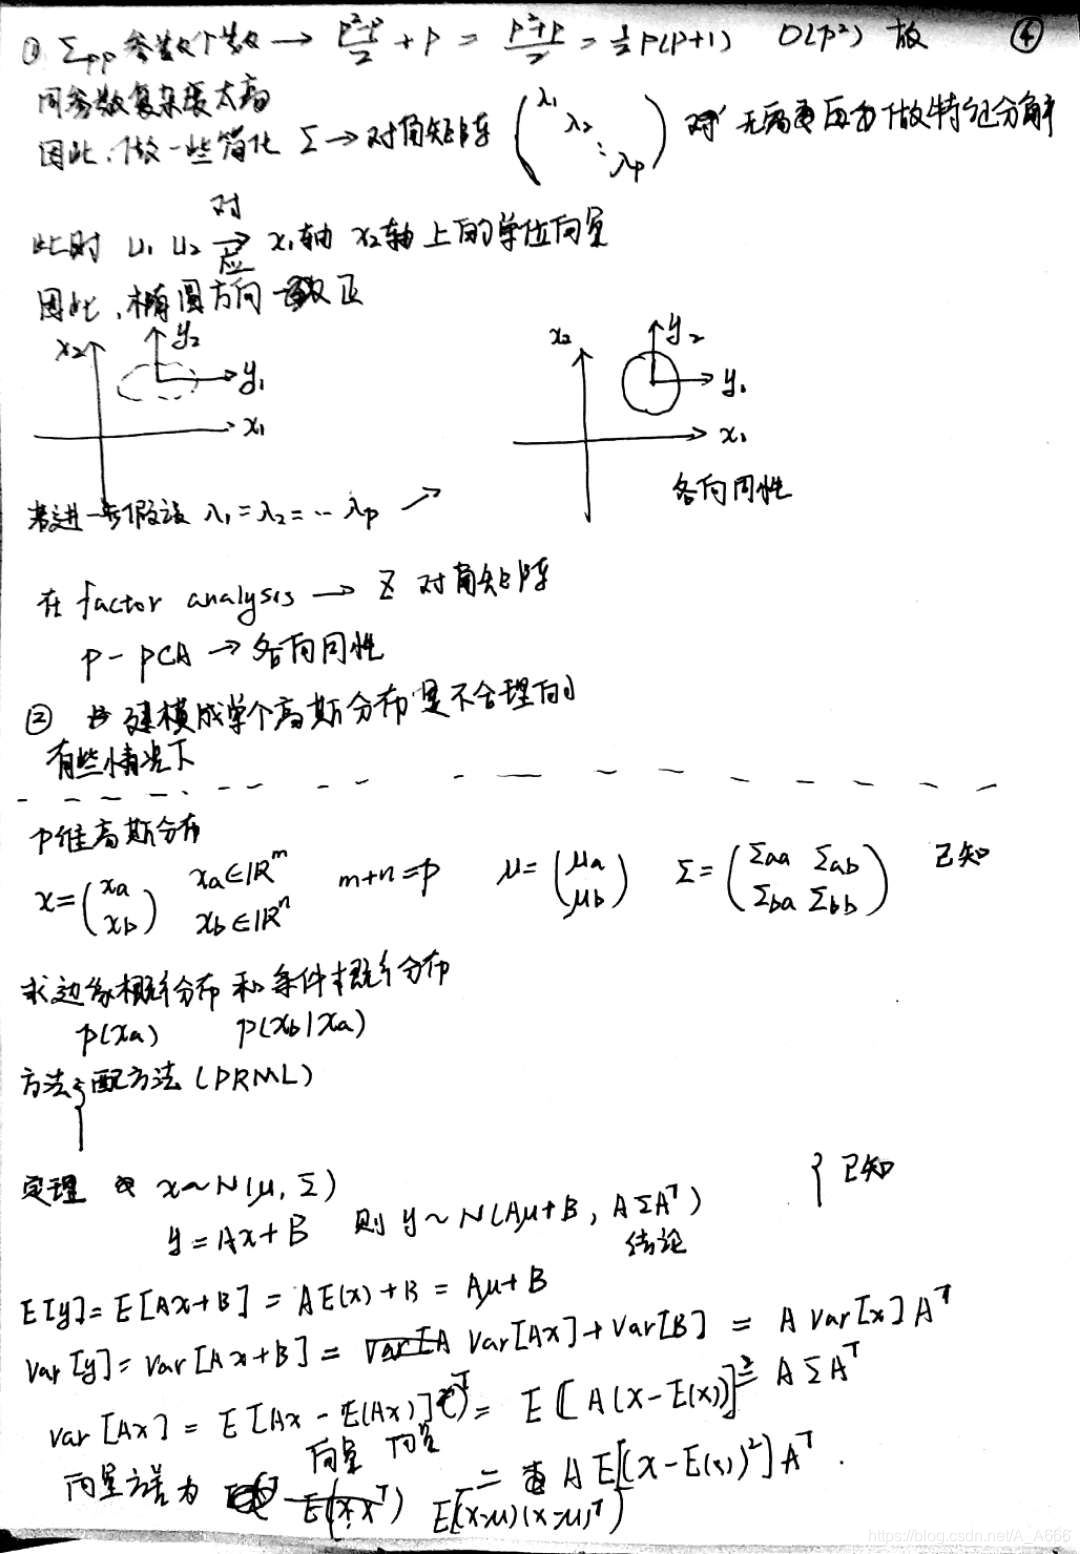 ① Σpp 参数个数 → (p²-p)/2 + p = (p²+p)/2 = ½ p(p+1) O(p²) 故 ④
问参数复杂度太高
因此,做一些简化 Σ → 对角矩阵 (λ₁ λ₂ ⋱ λp) 无需再去做特征分解
此时 u₁ u₂ →对应 x₁轴 x₂轴上的单位向量
因此,椭圆方向 正
x₂ y₂ y₁ x₁
x₂ y₂ y₁ x₁
各向同性
若进一步假设 λ₁=λ₂=…λp ↗
在 factor analysis → Z 对角矩阵
p-pCA → 各向同性
② 建模成单个高斯分布是不合理的
有些情况下
p维高斯分布
x=(xa xb) xa∈ℝᵐ xb∈ℝⁿ m+n=p μ=(μa μb) Σ=(Σaa Σab Σba Σbb) 已知
求边缘概率分布和条件概率分布
p(xa) p(xb|xa)
方法{配方法 (PRML)
定理 x~N(μ, Σ) } 已知
y=Ax+B 则 y~N(Aμ+B, AΣAᵀ)
结论
E[y]=E[Ax+B]=AE(x)+B=Aμ+B
Var[y]=Var[Ax+B]= Var[Ax]+Var[B] = A Var[x]Aᵀ
Var[Ax]=E[Ax-E(Ax)] = E[A(x-E(x))]² = AΣAᵀ
向量 向量
= A E[(x-E(x))²]Aᵀ.
向量方差为 E(x·xᵀ) E[(x-μ)(x-μ)ᵀ]
https://blog.csdn.net/A_A666